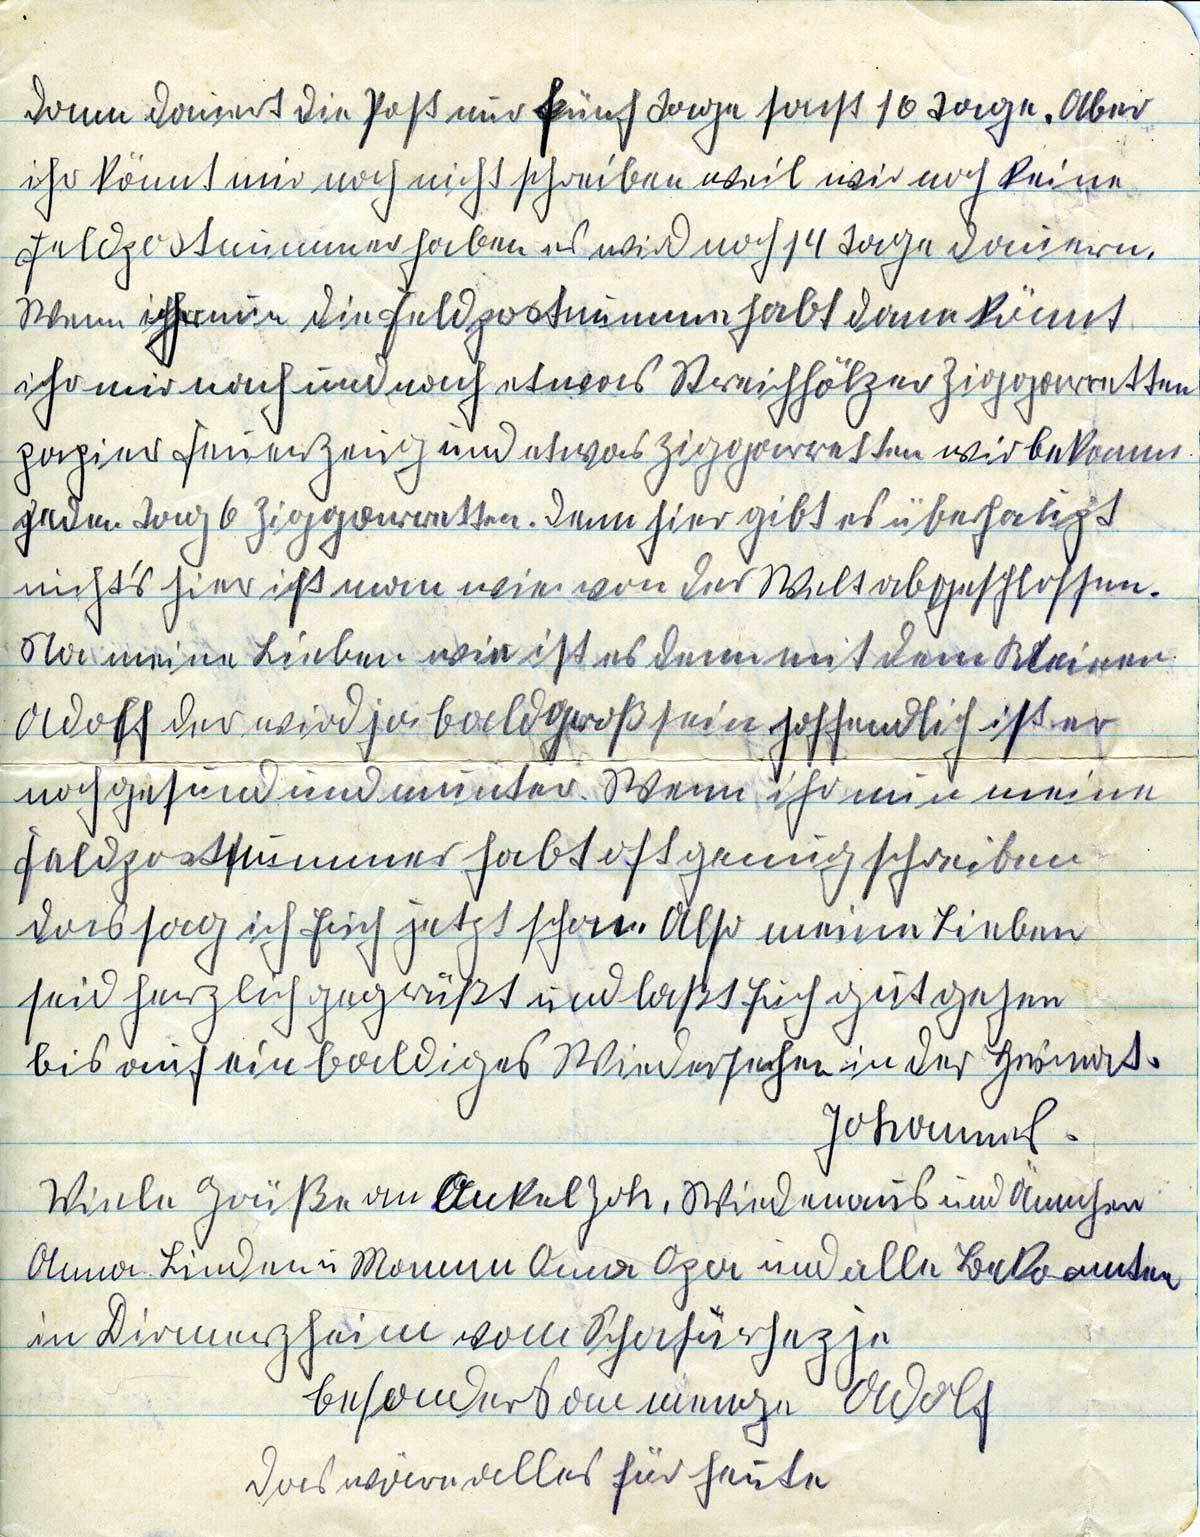 dann dauert die Post nur fünf Tage sonst 10 Tage. Aber
ihr könnt mir noch nicht schreiben weil wir noch keine
Feldpostnummer haben es wird noch 14 Tage dauern.
Wenn ihr nun die Feldpostnummer habt dann könnt
ihr mir nach und nach etwas Streichhölzer Ziggarretten
papier Feuerzeug und etwas Ziggarretten wir bekomm.
jeden Tag 6 Ziggarretten. denn hier gibt es überhaupt
nicht's hier ist man wie von der Welt abgeschlossen.
Na meine Lieben wie ist es denn mit dem Kleinen
Adolf der wird ja bald groß sein hoffendlich ist er
noch gesund und munter. Wenn ihr nun meine
Feldpostnummer habt oft genug schreiben
das sag ich Euch jetzt schon. Also meine Lieben
seid herzlich gegrüßt und laßt Euch gut gehen
bis auf ein baldiges Wiedersehen in der Heimat.
Johannes.
Viele Grüße an Onkel Joh, Wiedenaus und Ännchen
Anna Linden u Mamm Oma Opa und alle Bekannten
in Dirmerzheim vom
besonders am Adolf
das wäre alles für heute